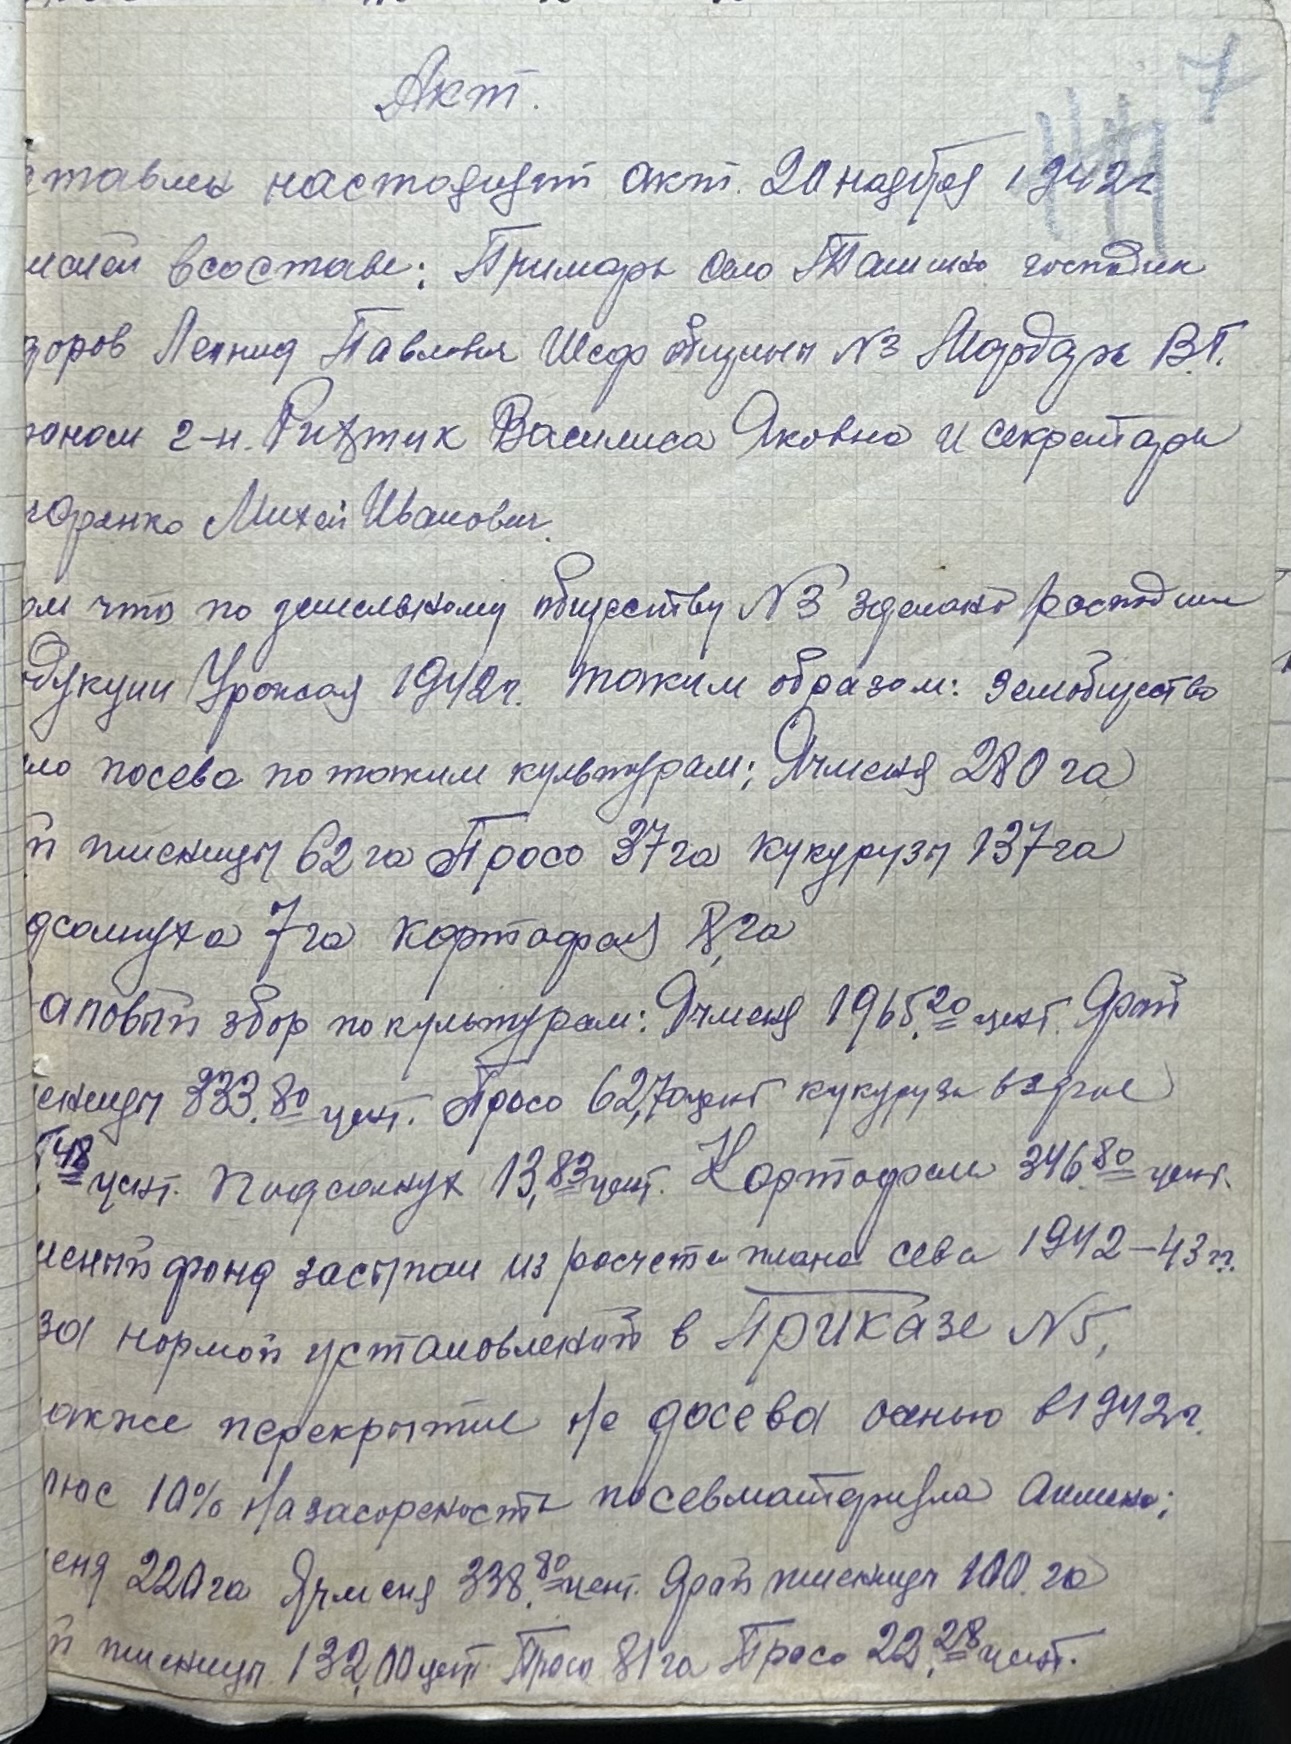 7
Акт.
ставлен настоящий акт. 20 ноября 1942 г
миссией в составе: Примарь село господин
доров Леонид Павлович Шеф общины №3 В.Г.
роном 2-н. Василиса Яковна и секретари
Михей Иванович.
ом что по земельному обществу №3 зделано
одукции Урожая 1942 г. таким образом: Земобщество
ло посева по таким культурам; Ячменя 280 га
й пшеницы 62 га Просо 37 га кукурузы 137 га
дсолнуха 7 га картофеля 8, га
аловый збор по культурам: Ячменя 1965,20 цент. Ярой
еницы 333.80 цент. Просо 62,70 цент кукуруза в зерне
48 цент. Подсолнух 13,83 цент. Картофеля 346.80 цент.
менный фонд засыпан из расчета плана сева 1942-43 гг.
за нормой установленной в Приказе №5,
акже перекрытие не досева осенью в 1942 г.
люс 10% на засореность посевматериала
еня 220 га Ячменя 338.80 цент. Ярой пшеницы 100. га
й пшеницы 132,00 цент. Просо 81 га Просо 22.28 цент.